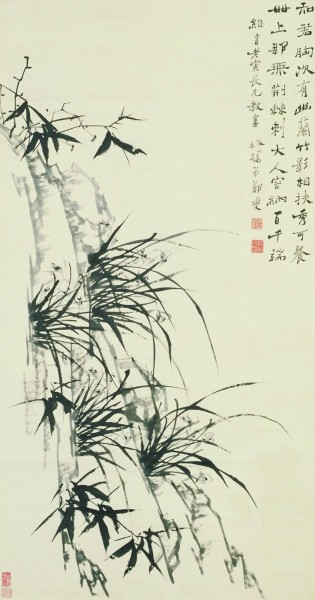 知君胸次有幽蘭竹影相扶秀可餐
世上那無荊棘刺大人容納百千端
維青老寅長兄教畫
板橋弟鄭燮